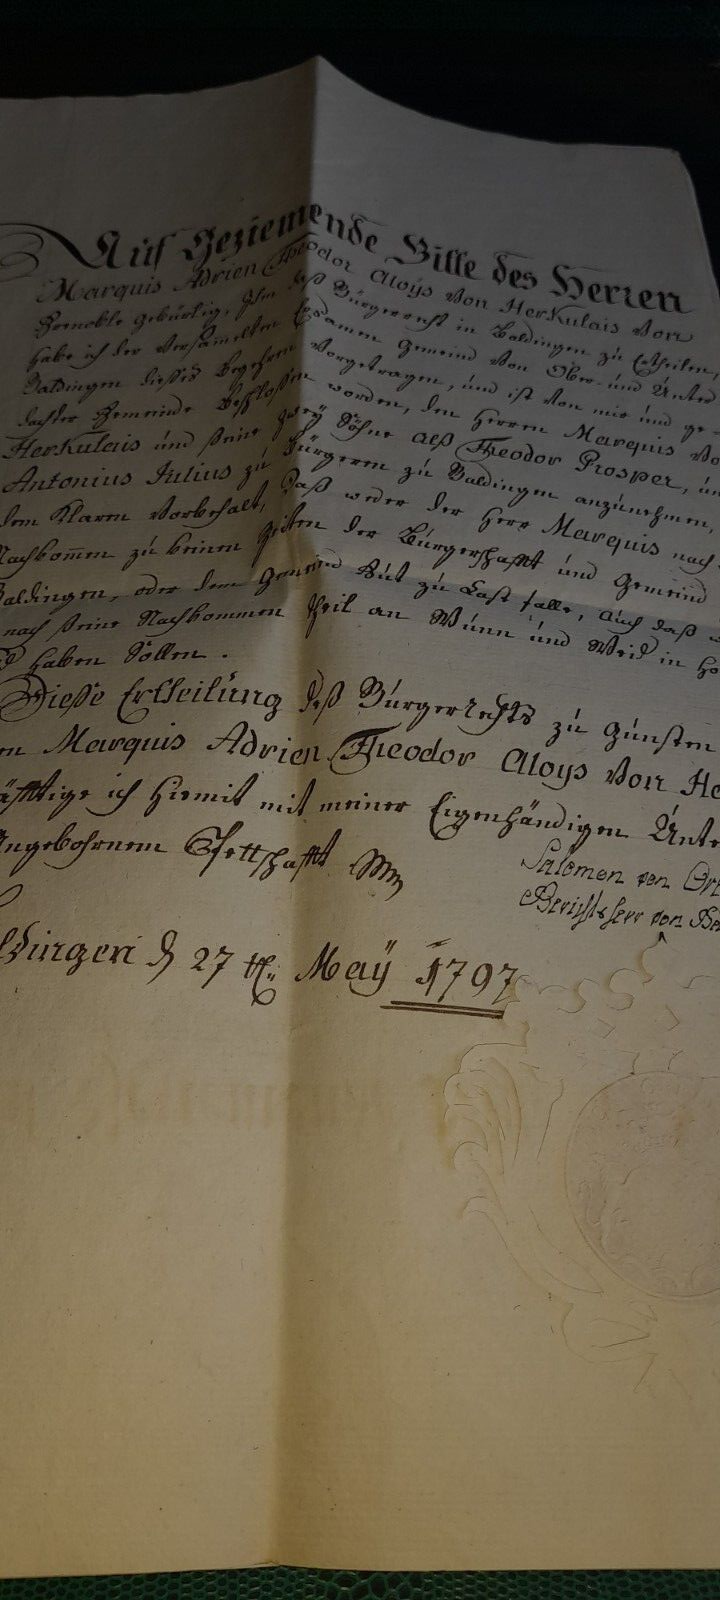 Auf Geziemende Bitte des Herren
Marquis Adrien Theodor Aloÿs von Herkulais von
Grenoble gebürtig, Ihm daß Bürgerrecht in Baldingen zu Ertheilen,
habe ich der Versamelten Ehrsamen Gemeind von Ober- und Unter
Baldingen dießes begehren vorgetragen, und ist von mir und ge-
dachter Gemeinde beschloßen worden, den Herren Marquis vo
Herkulais und seine zweÿ Söhne alß Theodor Prosper, un
Antonius Julius zu Bürgeren zu Baldingen anzunehmen,
dem Klaren Vorbehalt, daß weder der Herr Marquis noch
Nachkom̄en zu keinen Zeiten der Bürgerschafft und Gemeind
Baldingen, oder dem Gemeind Gut zu Last falle, auch daß
noch seine Nachkommen theil an Wunn und Weid in Ho
haben Sollen.
Dieße Ertheilung deß Bürgerrechts zu gunsten
en Marquis Adrien Theodor Aloÿs von He
äfftige ich hiemit mit meiner Eigenhändigen Unte
Angebohrnem Pettschafft
Salomon von Or
Gerichtsherr von Ba
ldingen d 27 t. Maÿ 1797